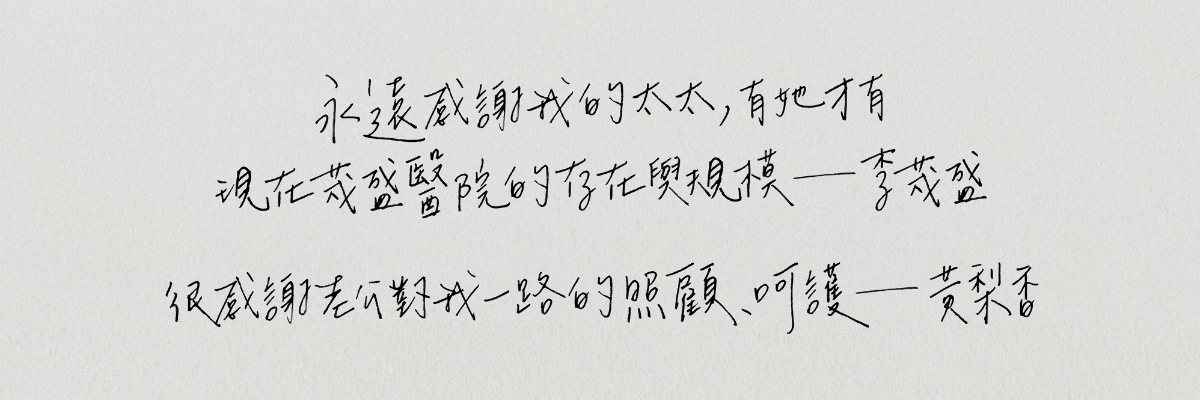 永遠感謝我的太太,有她才有
現在茂盛醫院的存在與規模——李茂盛
很感謝老公對我一路的照顧、呵護——黃梨香